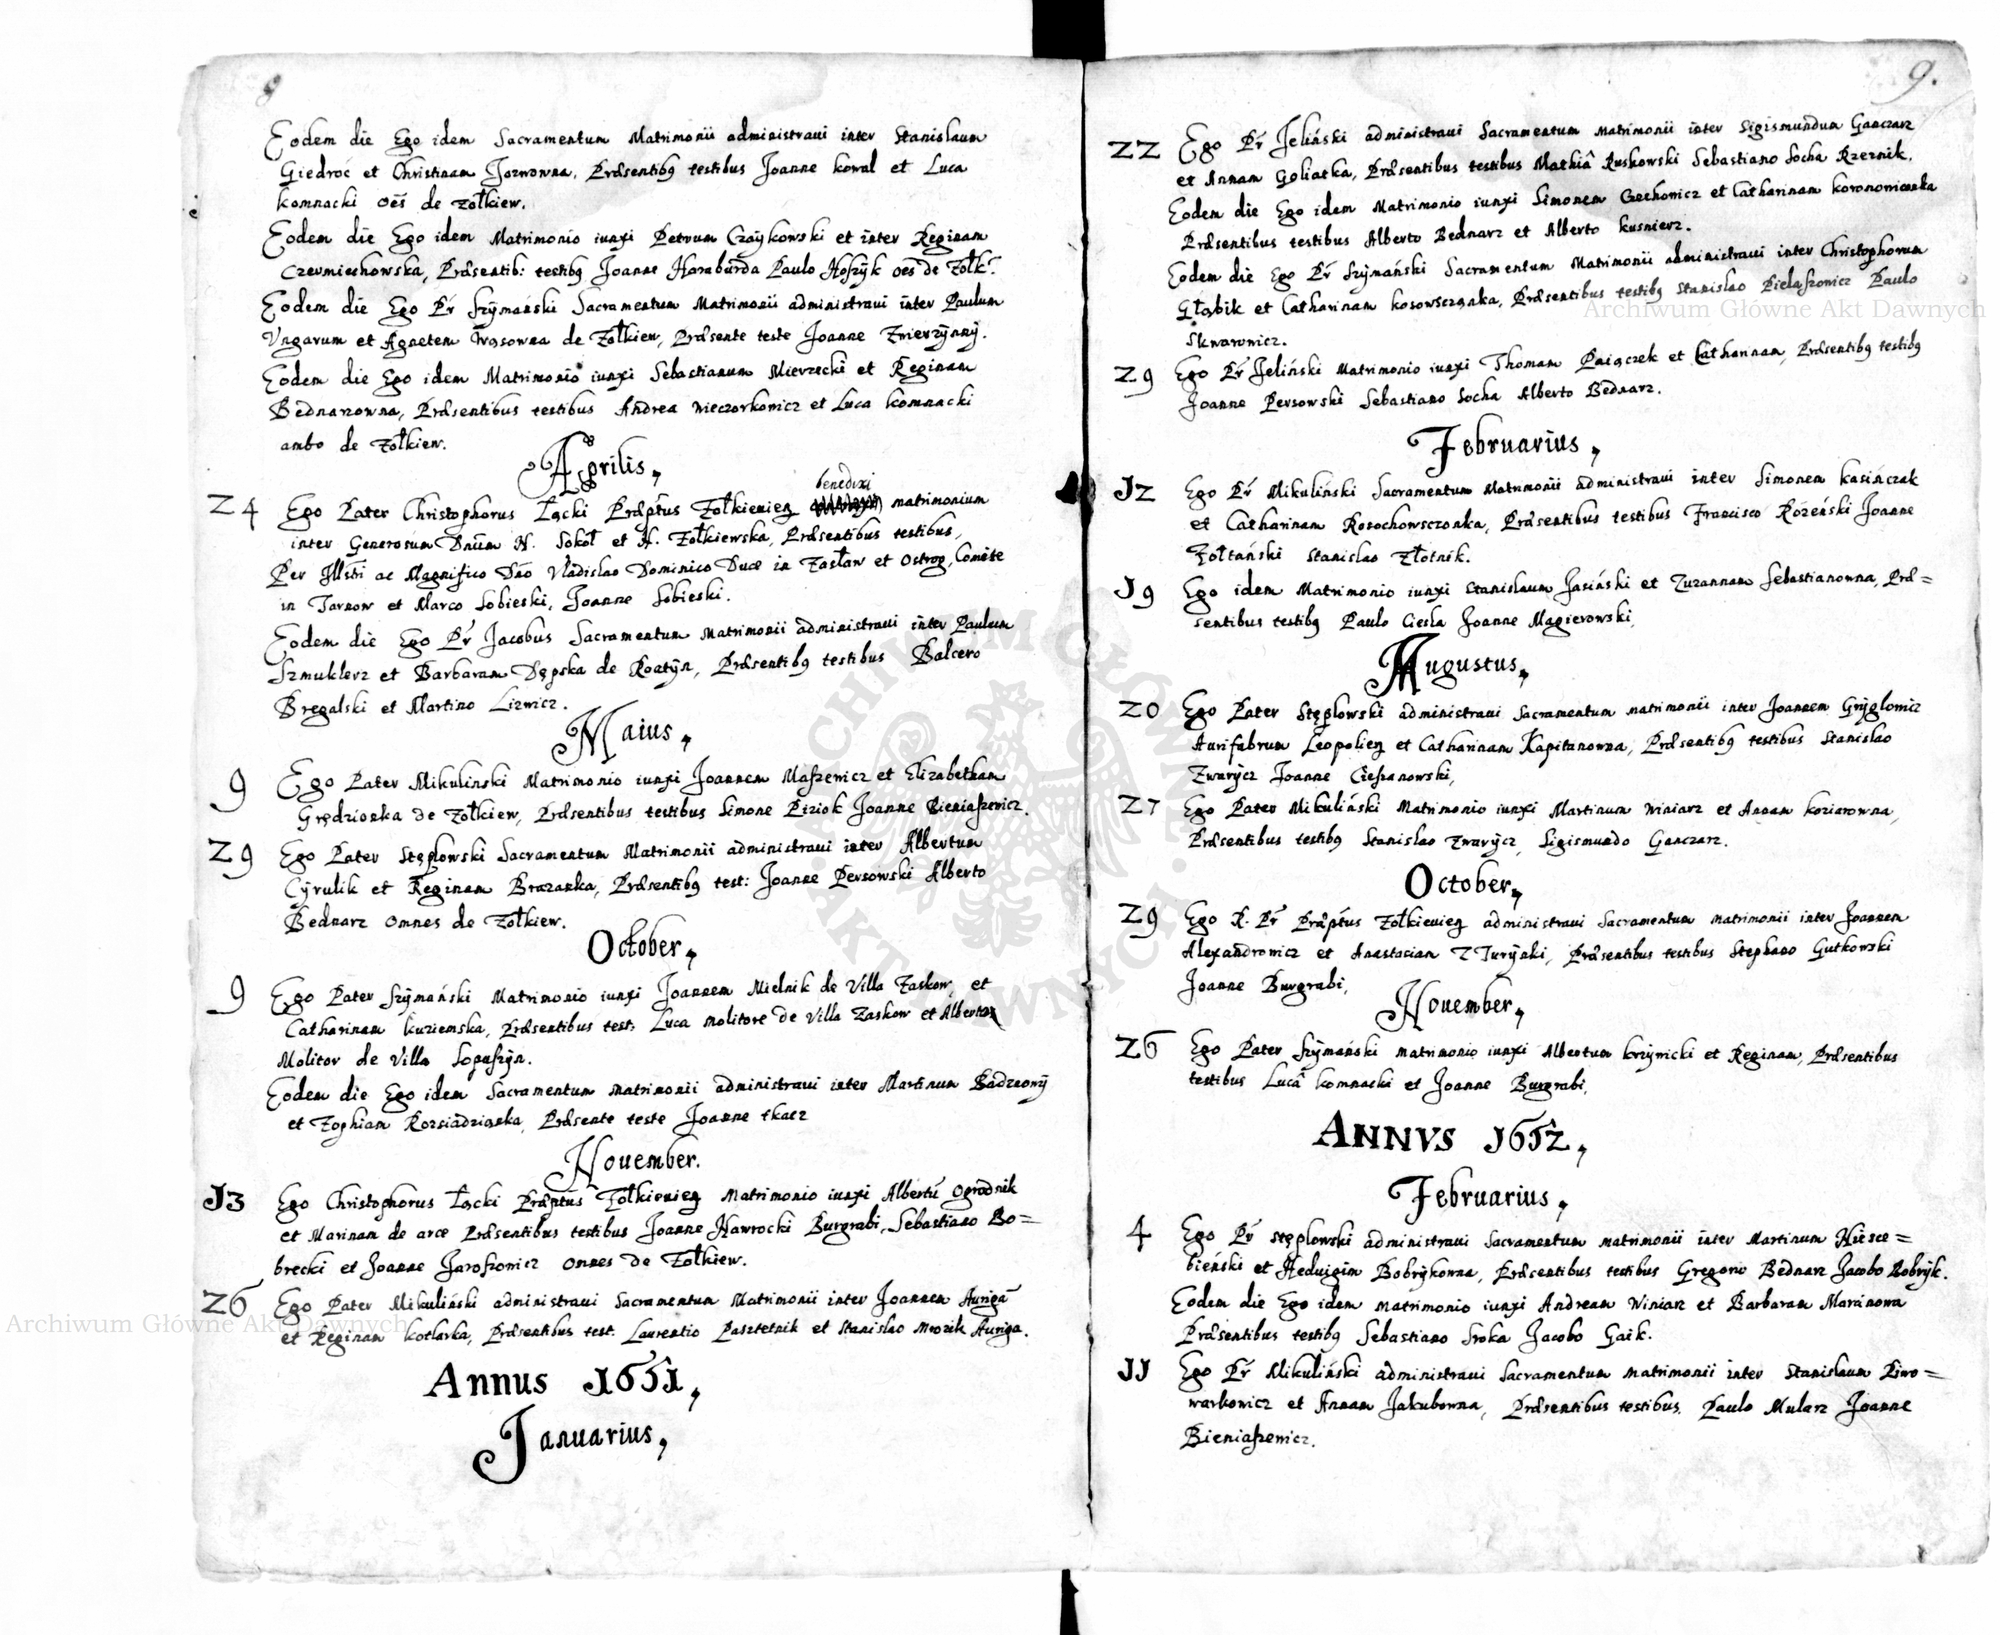 8
Eodem die Ego idem Sacramentum Matrimonii administraui inter Stanislaum
Giedroć et Christinam Jozwowna, Præsentibꝫ testibus Joanne Kowal et Luca
Komnacki oēs de Zołkiew.
Eodem die Ego idem Matrimonio iunxi Petrum Czaÿkowski et inter Reginam
Czermiechowska, Præsentib: testibꝫ Joanne Haraburda Paulo Hoszÿk oēs de Zołk:
Eodem die Ego Pr̄ Szÿmański Sacramentum Matrimonii administraui inter Paulum
Vngarum et Agnetem Wąsowna de Zołkiew, Præsente teste Joanne Zwierzÿnnÿ.
Eodem die Ego idem Matrimonio iunxi Sebastianum Mierzecki et Reginam
Bednarowna, Præsentibus testibus Andrea Wieczorkowicz et Luca Komnacki
ambo de Zołkiew.
Aprilis,
24 Ego Pater Christophorus Łącki Præptus Zołkieuieꝫ benedixi matrimonium
inter Generosum Dnūm N. Sokoł et N. Zołkiewska, Præsentibus testibus,
Per Illstri ac Magnifico Dn̄o Vladislao Dominico Duce in Zasław et Ostrog, Comite
in Tarnow et Marco Sobieski, Joanne Sobieski.
Eodem die Ego Pr̄ Jacobus Sacramentum Matrimonii administraui inter Paulum
Szmuklerz et Barbaram Dępska de Roatÿn, Præsentibꝫ testibus Balcero
Bregalski et Martino Lizwicz.
Maius,
9 Ego Pater Mikulinski Matrimonio iunxi Joannem Maszewicz et Elizabetham
Grędzionka de Zołkiew, Præsentibus testibus Simone Piziok Joanne Bieniaszewicz.
29 Ego Pater Stęplowski Sacramentum Matrimonii administraui inter Albertum
Cÿrulik et Reginam Brazanka, Præsentibꝫ test: Joanne Persowski Alberto
Bednarz omnes de Zołkiew.
October,
9 Ego Pater Szÿmański Matrimonio iunxi Joannem Mielnik de Villa Zaskow, et
Catharinam Kuziemska, Præsentibus test: Luca molitore de Villa Zaskow et Alberto
Molitor de Villa Sopuszÿn.
Eodem die Ego idem Sacramentum matrimonii administraui inter Martinum Badzionÿ
et Zophiam Rozsiadzianka, Præsente teste Joanne tkacz
Nouember.
13 Ego Christophorus Łącki Præptus Zołkieuieꝫ Matrimonio iunxi Albertū Ogrodnik
et Marinam de arce Præsentibus testibus Joanne Nawrocki Burgrabi, Sebastiano Bo=
brecki et Joanne Jaroszowicz omnes de Zołkiew.
26 Ego Pater Mikuliński administraui Sacramentum Matrimonii inter Joannem Aurigā
et Reginam Kotlarka, Præsentibus test: Laurentio Pasztetnik et Stanislao Mrozik Auriga.
Annus 1651,
Januarius,
9.
22 Ego Pr̄ Jeliński administraui Sacramentum Matrimonii inter Sigismundum Ganczarz
et Annam Goliatka, Præsentibus testibus Mathiâ Ruskowski Sebastiano Socha Rzeznik.
Eodem die Ego idem Matrimonio iunxi Simonem Czechowicz et Catharinam Koronowiczka
Præsentibus testibus Alberto Bednarz et Alberto Kusnierz.
Eodem die Ego Pr̄ Szÿmański Sacramentum Matrimonii administraui inter Christophorum
Głąbik et Catharinam Kosowsczanka, Præsentibus testibꝫ Stanislao Pielaszowicz Paulo
Skwarowicz.
29 Ego Pr̄ Jeliński Matrimonio iunxi Thomam Pniączek et Catharinam, Præsentibꝫ testibꝫ
Joanne Persowski Sebastiano Socha Alberto Bednarz.
Februarius,
12 Ego Pr̄ Mikuliński Sacramentum Matrimonii administraui inter Simonem Kasińczak
et Catharinam Rosochowsczonka, Præsentibus testibus Francisco Rózeński Joanne
Zółtański Stanislao Złotnik.
19 Ego idem Matrimonio iunxi Stanislaum Jasiński et Zuzannam Sebastianowna, Præ=
sentibus testibꝫ Paulo Ciesla Joanne Magierowski,
Augustus,
20 Ego Pater Stęplowski administraui Sacramentum matrimonii inter Joannem Grÿglowicz
Aurifabrum Leopolieꝫ et Catharinam Kapitanowna, Præsentibꝫ testibus Stanislao
Zwarÿcz Joanne Cieszanowski,
27 Ego Pater Mikuliński Matrimonio iunxi Martinum Winiarz et Annam Koziarowna,
Præsentibus testibꝫ Stanislao Zwarÿcz, Sigismundo Ganczarz.
October,
29 Ego R. Pr̄ Præptus Zołkieuieꝫ administraui Sacramentum matrimonii inter Joannem
Alexandrowicz et Anastasiam Z Turÿnki, Præsentibus testibus Stephano Gutkowski
Joanne Burgrabi,
Nouember,
26 Ego Pater Szÿmański matrimonio iunxi Albertum Krzÿwicki et Reginam, Præsentibus
testibus Lucâ Komnacki et Joanne Burgrabi,
ANNVS 1652,
Februarius,
4 Ego Pr̄ Stęplowski administraui Sacramentum matrimonii inter Martinum Niesce=
bieński et Heduigim Bobrÿkowna, Præsentibus testibus Gregorio Bednarz Jacobo Bobrÿk.
Eodem die Ego idem matrimonio iunxi Andream Winiarz et Barbaram Maranowa
Præsentibus testibꝫ Sebastiano Sroka Jacobo Gaik.
11 Ego Pr̄ Mikuliński administraui Sacramentum matrimonii inter Stanislaum Piwo=
warkowicz et Annam Jakubowna, Præsentibus testibus. Paulo Mularz Joanne
Bieniaszewicz.
Archiwum Główne Akt Dawnych
Archiwum Główne Akt Dawnych
ARCHIWUM GŁÓWNE AKT DAWNYCH